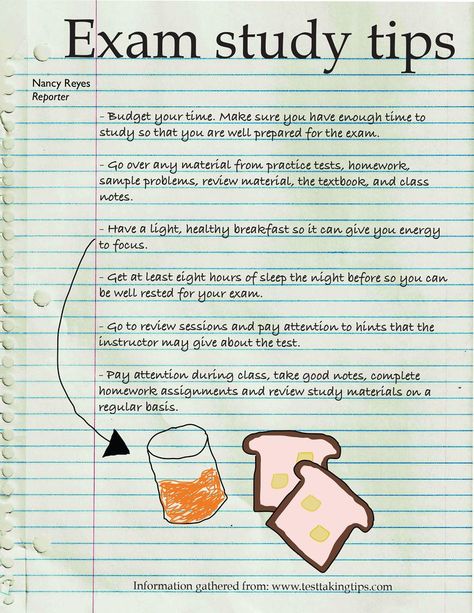 Exam study tips
Nancy Reyes
Reporter
- Budget your time. Make sure you have enough time to
study so that you are well prepared for the exam.
- Go over any material from practice tests, homework,
sample problems, review material, the textbook, and class
notes.
- Have a light, healthy breakfast so it can give you energy
to focus.
- Get at least eight hours of sleep the night before so you can
be well rested for your exam.
- Go to review sessions and pay attention to hints that the
instructor may give about the test.
- Pay attention during class, take good notes, complete
homework assignments and review study materials on a
regular basis.
Information gathered from: www.testtakingtips.com